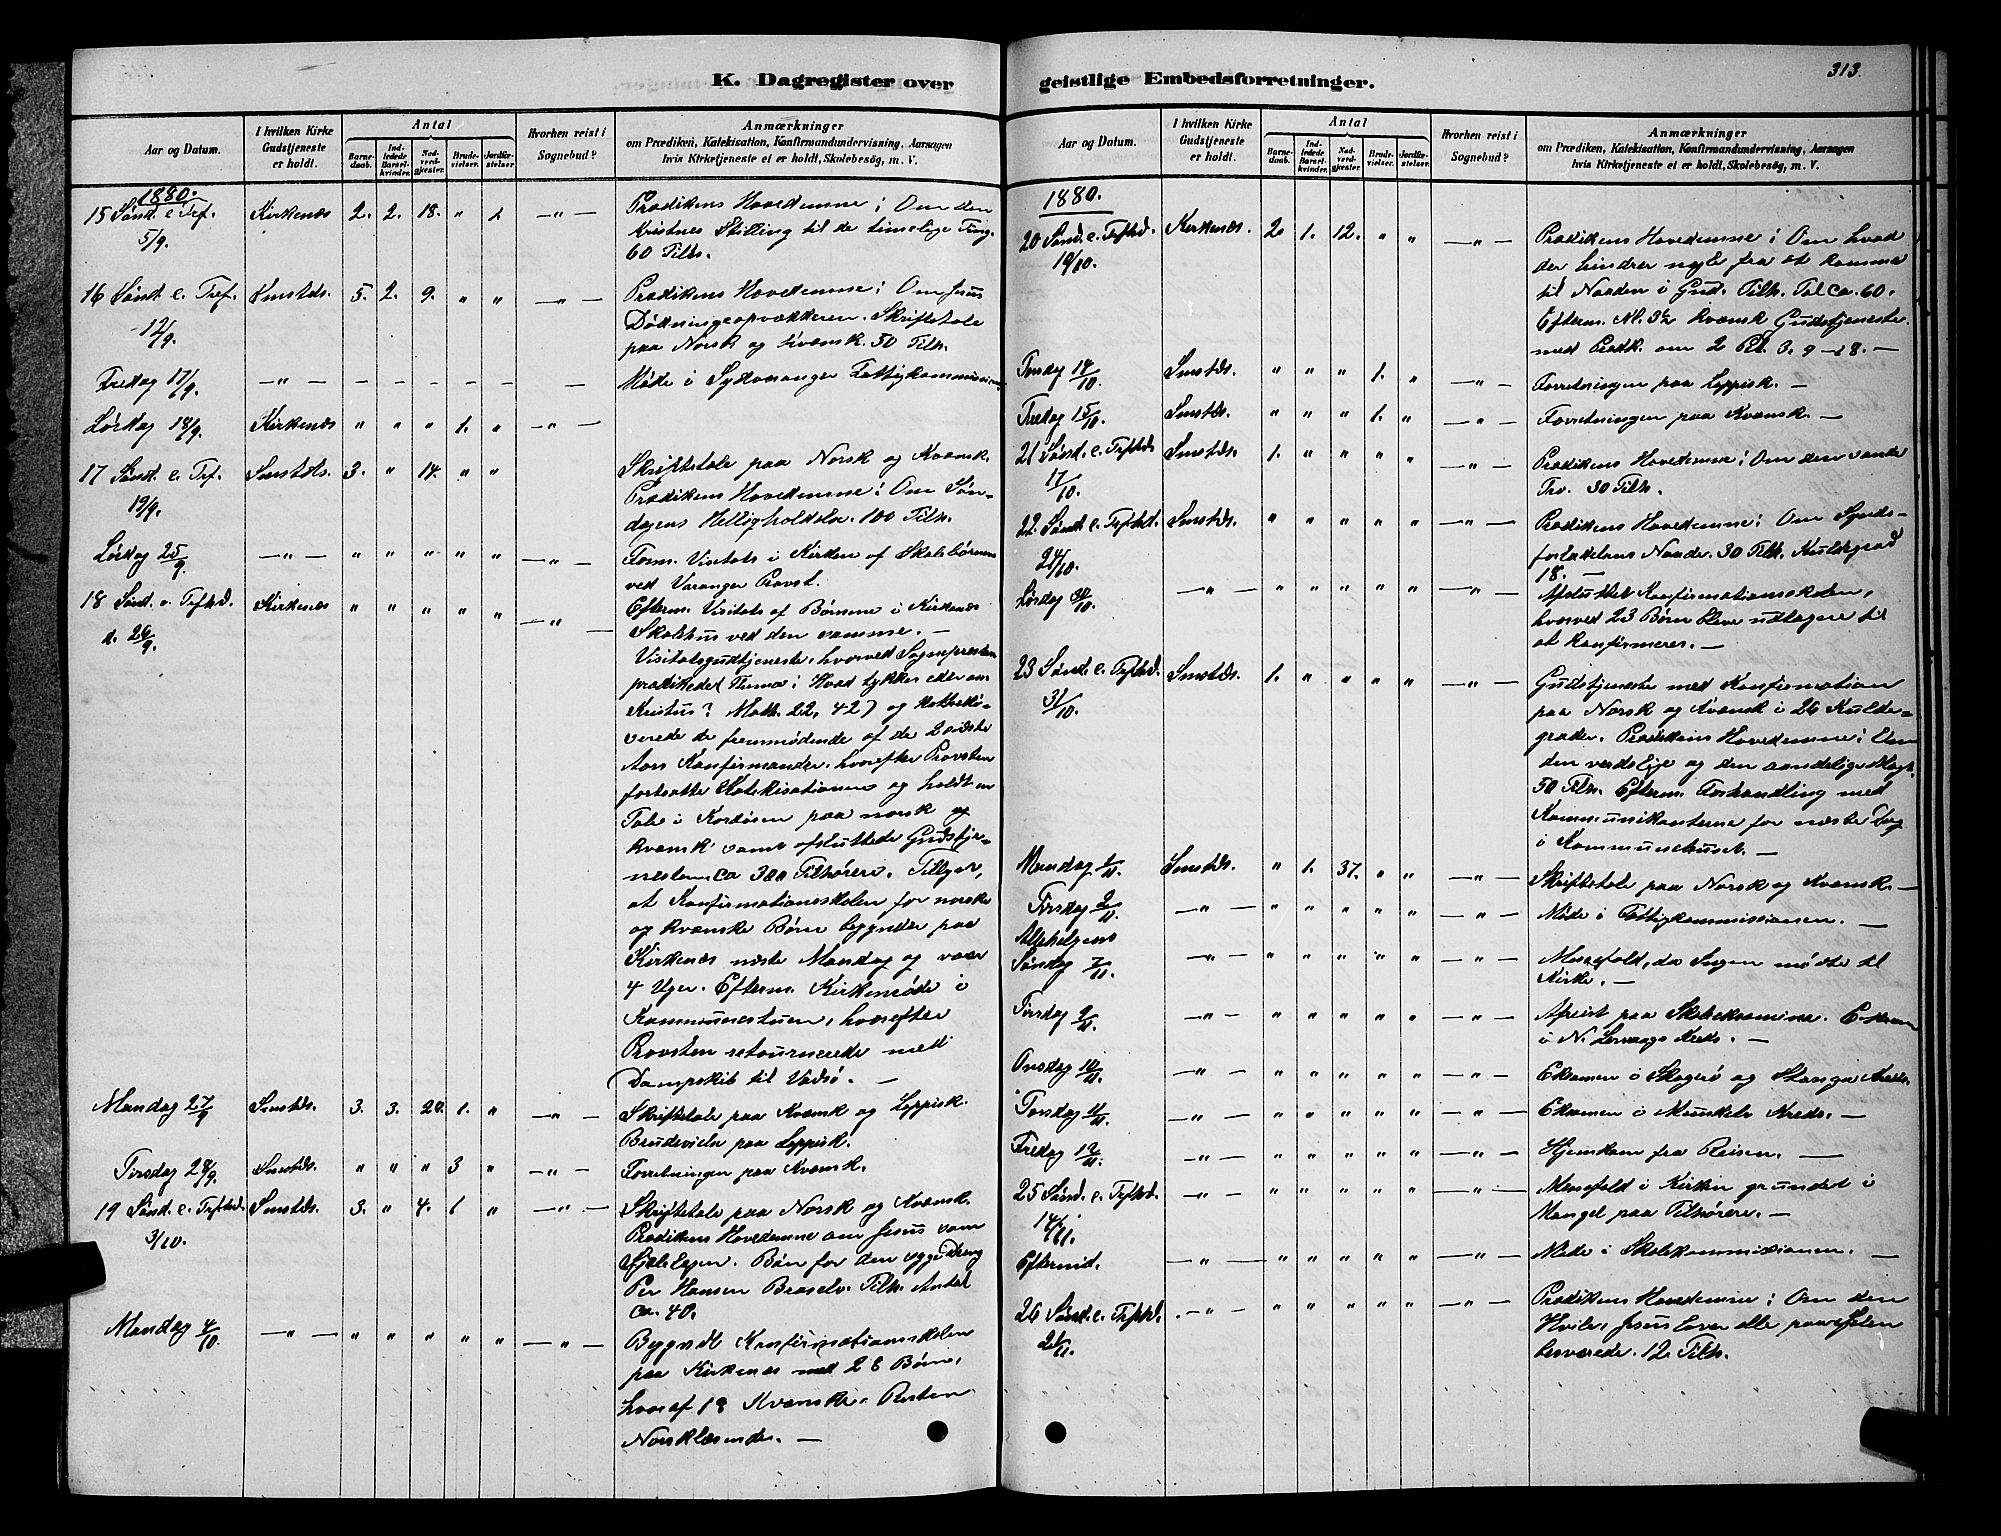 K. Dagregister over
Aar og Datum.
I hvilken Kirke Gudstjeneste er holdt.
Antal
Barnedaab.
Indledede Barselkvinder.
Nadverdgjester.
Brudevielser.
Jordfæstelser.
Hvorhen reist i Sognebud?
Anmærkninger
om Prædiken, Katekisation, Konfirmandundervisning, Aarsagen
hvis Kirketjeneste ei er holdt, Skolebesøg, m. V.
1880.
15 Sønd. e. Tref. Kirkenæs 2. 2. 18. " 1. — " — Prædikens Hovedemne: Om den
5/9. Kristnes Stilling til de timelige Ting.
60 Tilh.
16 Sønd e. Tref. Smstds. 5. 2. 9. " " — " — Prædikens Hovedemne: Om Jesus
12/9. Dødningeopvækkeren. Skriftetale
paa Norsk og Kvænsk. 50 Tilh.
Fredag 17/9. — " — Møde i Sydvaranger Fattigkommission
Lørdag 18/9. Kirkenæs " " " 1. " — " —
17 Sønd. e. Tref. Smstds. 3. " 14. " " Skriftetale paa Norsk og Kvænsk.
19/9. Prædikens Hovedemne: Om Søn-
dagens Helligholdelse. 100 Tilh.
Lørdag 25/9. — " — " " " " " — " — Form. Visitats i Kirken af Skolebørnene
ved Varanger Provst.
18 Sønd. e. Trefhd. Kirkenæs " " " " " — " — Efterm. Visitats af Børnene i Kirkenæs
d. 26/9. Skolehus ved den samme. —
Visitatsgudtjeneste, hvorved Sognepresten
prædikedet Thema: Hvad tykkes eder om
Kristus? Math. 22, 42) og katheki-
serede de fremmødende af de 2 sidste
Aars Konfirmander, hvorefter Provsten
fortsatte Katekisationen og holdt en
Tale i Kordøren paa norsk og
kvænsk samt afsluttede Gudstje-
nesten. Ca 300 Tilhørere. Tillyst,
at Konfirmationsskolen for norske
og kvænske Børn begynder paa
Kirkenæs næste Mandag og varer
4 Uger. Efterm. Kirkemøde i
Kommunestuen, hvorefter
Provsten retournerede med
Dampskib til Vadsø. —
Mandag 27/9 Smstds. 3. 3. 20. 1. " — " — Skriftetale paa Kvænsk og Lappisk.
Brudevielse paa Lappisk.
Tirsdag 28/9. Smstds. " " " 3 " — " — Forretninger paa Kvænsk.
19 Sønd. e. Trefhd. Smstds. 3. " 4. 1 " — " — Skriftetale paa Norsk og Kvænsk.
3/10. Prædikens Hovedemne om Jesus som
Sjælelægen. Bøn for den syge Dreng
Per Hansen Tilh. Antal
ca. 40.
Mandag 4/10. — " — " " " " " — " — Begyndt Konfirmationsskolen
paa Kirkenæs med 28 Børn,
hvoraf 18 Kvænske. Resten
Norsklæsende. —
geistlige Embedsforretninger.
313.
Aar og Datum.
I hvilken Kirke Gudstjeneste er holdt.
Antal
Barnedaab.
Indledede Barselkvinder.
Nadverdgjester.
Brudevielser.
Jordfæstelser.
Hvorhen reist i Sognebud?
Anmærkninger
om Prædiken, Katekisation, Konfirmandundervisning, Aarsagen
hvis Kirketjeneste ei er holdt, Skolebesøg, m. V.
1880.
20 Sønd. e. Trefhd. Kirkenæs. 2. 1. 12. " " — " — Prædikens Hovedemne: Om hvad
10/10. der hindrer nogle fra at komme
til Naaden i Gud. Tilh. Tal ca. 60.
Efterm. Kl. 3½ kvænsk Gudstjeneste
med Prædk. om 2 Pet. 3. 9 – 18. —
Torsdag 14/10. Smstds. " " " 1. " — " — Forretningen paa Lappisk. —
Fredag 15/10. Smstds. " " " 1. " — " — Forretningen paa Kvænsk. —
21 Sønd. e. Trefhd. Smstds. 1. " " " " — " — Prædikens Hovedemne: Om den sande
17/10. Tro. 30 Tilh.
22. Sønd e. Trefhd. Smstds. " " " " " — " — Prædikens Hovedemne: Om Synds-
24/10. forladelsens Naade. 30 Tilh. Kuldegrad
18. —
Lørdag 30/10. — " — " " " " " — " — Afsluttet Konfirmationsskolen,
hvorved 23 Børn bleve udtagne til
at konfirmeres. —
23 Sønd. e. Trefhd. Smstds. 1. " " " " — " — Gudstjeneste med Konfirmation
31/10. paa Norsk og Kvænsk i 26 Kulde-
grader. Prædikens Hovedemne: Om
den verdslige og den aandelige Magt.
50 Tilh. Efterm. Forhandling med
Kommunikanterne for næste Dag
i Kommunehuset. —
Mandag 1/11. Smstds. " 1. 37. " " — " — Skriftetale paa Norsk og Kvænsk. —
Tirsdag 2/11. — " — " " " " " — " — Møde i Fattigkommissionen. —
Allehelgens
Søndag 7/11. — " — " " " " " — " — Messefald, da Ingen mødte til
Kirke. —
Tirsdag 9/11. — " — " " " " " — " — Afreist paa Skoleexamina. Examen
i N. Kreds. —
Onsdag 10/11. — " — " " " " " — " — Examen i Skogerø og Stanga Kreds.
Torsdag 11/11. — " — " " " " " — " — Examen i Munkelv Kreds. —
Fredag 12/11. — " — " " " " " — " — Hjemkom fra Reisen. —
25 Sønd. e. Trefhd. — " — " " " " " — " — Messefald i Kirken grundet i
14/11. Mangel paa Tilhørere. —
Eftermid. — " — " " " " " — " — Møde i Skolekommissionen. —
26 Sønd. e. Trefhd. — " — " " " " " — " — Prædikens Hovedemne: Om den
21/11. Hvile, Jesus lover alle
besværede. 12 Tilh.